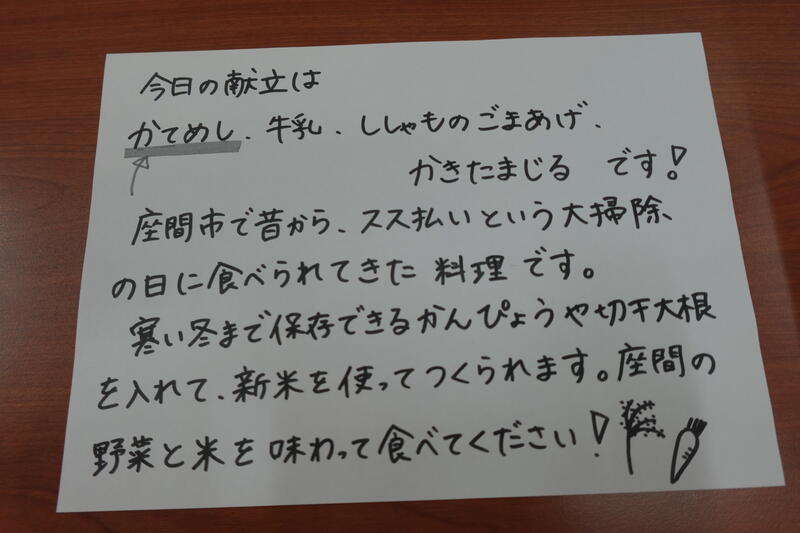 今日の献立は
かてめし、牛乳、ししゃものごまあげ、
かきたまじる です!
座間市で昔から、スス払いという大掃除、
の日に食べられてきた 料理 です。
寒い冬まで保存できるかんぴょうや切干大根
を入れて、新米を使ってつくられます。座間の
野菜と米を味わって食べてください!